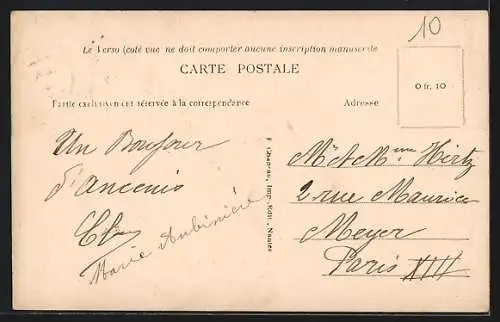 10
Le Verso (coté vue ne doit comporter aucune inscription manuscrite
CARTE POSTALE
0 fr. 10
Partie exclusivement réservée à la correspondance
Adresse
Un Bonjour
d'Ancenis
Marie Aubinière
F. Chapeau, Imp.-Edit., Nantes
Mr & Mme Hirtz
2 rue Maurice
Meyer
Paris XIII